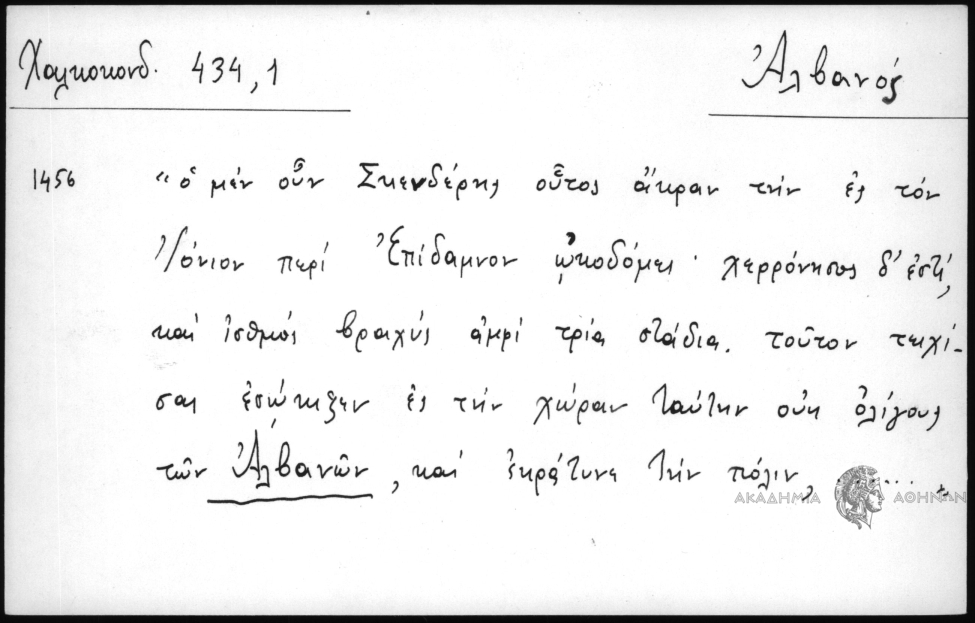 Χαλκοκονδ. 434,1
Ἀλβανός
1456
“ὁ μέν οὖν Σκενδέρης οὗτος ἄκραν τήν ἐς τόν
Ἰόνιον περί Ἐπίδαμνον ᾠκοδόμει · χερρόνησος δ' ἐστί,
καί ἰσθμός βραχύς ἀκρί τρία στάδια. τοῦτον τειχί-
σαι ἐσῴκιξεν ἐς τήν χώραν ταύτην οὐκ ὀλίγους
τῶν Ἀλβανῶν, καί ἐκράτυνε τήν πόλιν, ........
ΑΚΑΔΗΜΙΑ ΑΘΗΝΩΝ